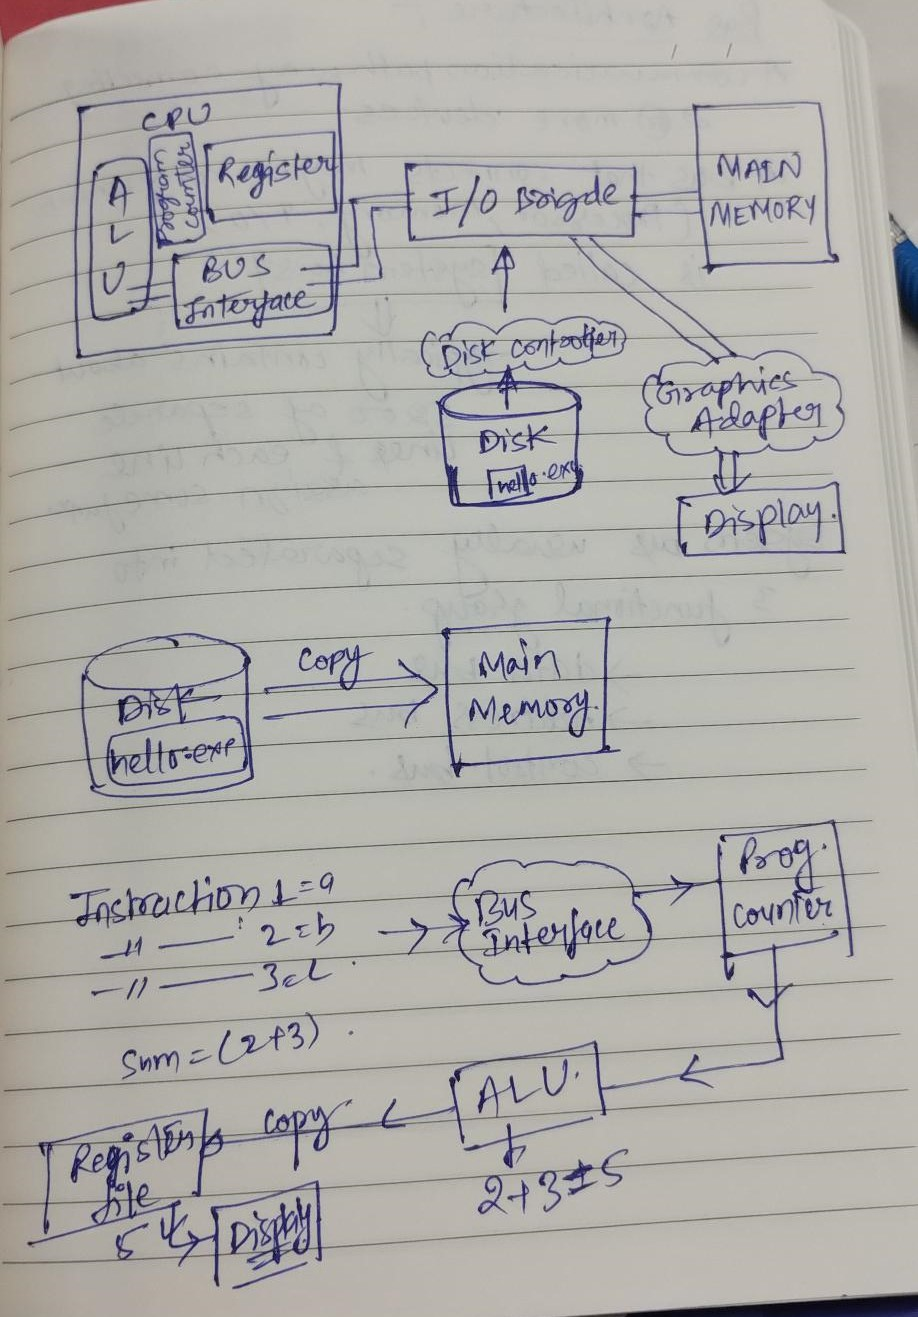 CPU
ALU
Program
Counter
Register
BUS
Interface
I/O Brigde
MAIN
MEMORY
Disk controller
Disk
hello.exe
Graphics
Adapter
Display.
Disk
hello.exe
Copy
Main
Memory.
Instraction 1 = a
-11- 2 = b
-11-
Bus
Interface
Prog.
Counter
Sum = (2+3).
ALU.
2+3=5
copy
Register
file
5
Display